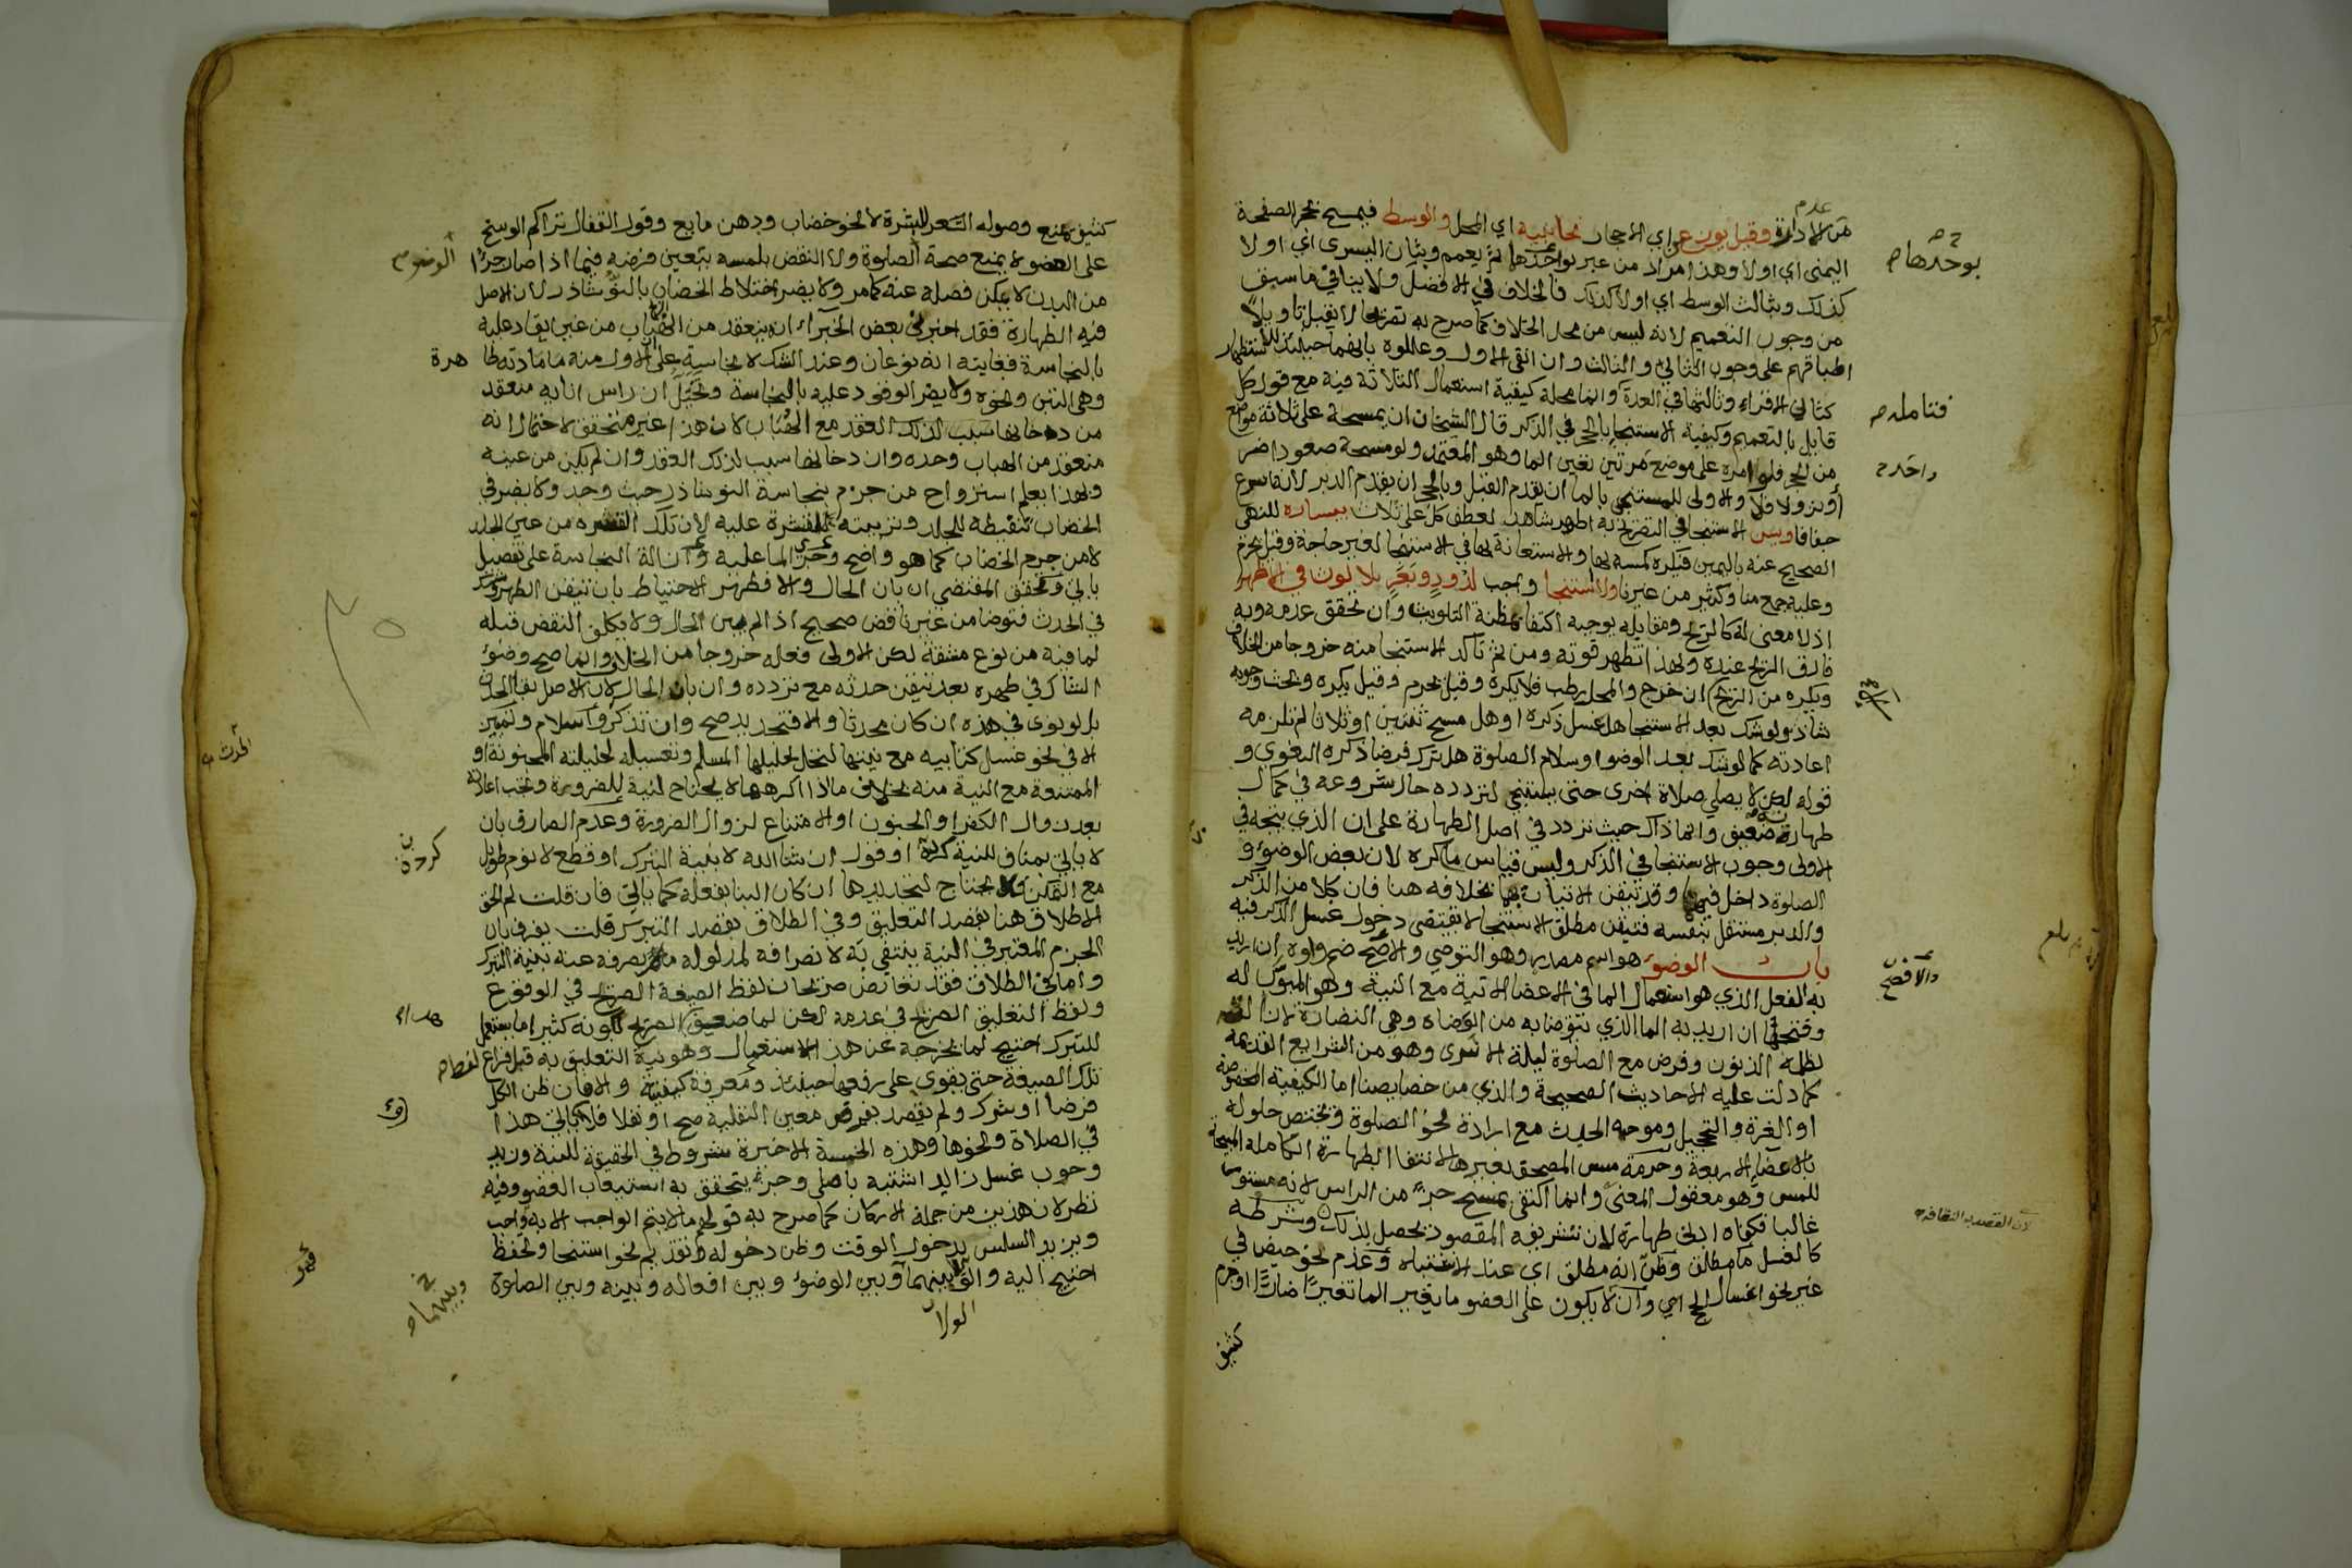 من الادارة وقيل يوزعن اي الاحجار لجانبيه اي المحل والوسط فيمسح بحجر الصفحة
اليمنى اي اولا وهذا مراد من عبر بواحدها ثم يعمم وبثان اليسرى اي اولا
كذلك وبثالث الوسط اي اولا كذلك فالخلاف في الافضل ولا ينافي ما سبق
من وجوب التعميم لانه ليس من محل الخلاف كما صرح به تصريحا لا يقبل تاويلا
اطباقهم على وجوب الثاني والثالث وان انقى الاول وعللوه بانهما حينئذ للاستظهار
كثاني الاقراء وثالثها في العدة وانما محله كيفية استعمال الثلاثة فيه مع قول كل
قايل بالتعميم وكيفية الاستنجا بالحجر في الذكر قال الشيخان ان يمسحه على ثلاثة مواضع
من الحجر فلو امره على موضع مرتين تعين الما وهو المعتمد ولو مسحه صعودا ضر
او نزولا فلا والاولى للمستنجي بالما ان يقدم القبل وبالحجر ان يقدم الدبر لانه اسرع
جفافا ويسن الاستنجا بيساره للنهي
الصحيح عنه باليمين فيكره كمسه بها والاستعانة بها في الاستنجا لغير حاجة وقيل يحرم
وعليه جمع منا وكثير من غيرنا ولا استنجا واجب لدود وبعر بلا لوث في الاظهر
اذ لا معنى له كالريح ومقابله يوجبه اكتفا بمظنة التلويث وان تحقق عدمه وبه
فارق الريح عنده ولهذا تظهر قوته ومن ثم تاكد الاستنجا منه خروجا من الخلاف
ويكره من الريح ان خرج والمحل رطب فلا يكره وقيل يحرم وقيل يكره وبحث وجوبه
شاذ ولو شك بعد الاستنجا هل غسل ذكره او هل مسح ثنتين او ثلاثا لم تلزمه
اعادته كما لو شك بعد الوضوا وسلام الصلوة هل ترك فرضا ذكره البغوي و
قوله لكن لا يصلي صلاة اخرى حتى يستنجي لتردده حال شروعه في كمال
طهارته ضعيف وانما ذاك حيث تردد في اصل الطهارة على ان الذي يتجه في
الاولى وجوب الاستنجا في الذكر وليس قياس ما ذكره لان بعض الوضوء و
الصلوة داخل فيهما وقد تيقن الاتيان بهما بخلافه هنا فان كلا من الذكر
والدبر مستقل بنفسه فتيقن مطلق الاستنجا لا يقتضي دخول غسل الذكر فيه
باب الوضوء هو اسم مصدر وهو التوضي والافصح ضم واوه ان اريد
به الفعل الذي هو استعمال الما في الاعضا الاتية مع النية وهو المبوب له
وفتحها ان اريد به الما الذي يتوضا به من الوضاة وهي النضارة
لظلمة الذنوب وفرض مع الصلوة ليلة الاسرى وهو من الشرايع القديمة
كما دلت عليه الاحاديث الصحيحة والذي من خصايصنا اما الكيفية المخصوصة
او الغرة والتحجيل وموجبه الحدث مع ارادة نحو الصلوة ويختص حلوله
بالاعضاء الاربعة وحرمة مس المصحف بغيرها لانتفا الطهارة الكاملة المبيحة
للمس وهو معقول المعنى وانما اكتفي بمسح جزء من الراس لانه مستور
غالبا فكفاه ادنى طهارة لان تشريفه المقصود يحصل بذلك وشرطه
كالغسل ما مطلق وظن انه مطلق اي عند الاشتباه وعدم نحو حيض في
غير نحو اغسال الحج اي وان لا يكون على العضو ما يغير الما تغيرا ضارا او جرم
كثيف
عدم
بوحدها
فتامله
واحد
والافصح
لان القصد به النظافة
كثيف يمنع وصوله للبشرة لا نحو خضاب ودهن مايع وقول القفال تراكم الوسخ
على العضو لا يمنع صحة الصلوة ولا النقض بلمسه يتعين فرضه فيما اذا صار جزءا
من البدن لا يمكن فصله عنه كما مر ولا يضر اختلاط الخضاب بالنوشاذر لان الاصل
فيه الطهارة فقد اخبر بعض الخبراء انه ينعقد من الهباب من غير ايقاد عليه
بالنجاسة فغايته انه نوعان وعند الشك لا نجاسة على ان الاول منه ما مادته طاهرة
وهي التبن ونحوه ولا يضر الوقود عليه بالنجاسة وتخيل ان راس انايه منعقد
من دخانها سبب لذلك العقد مع الهباب لان هذا غير متحقق لاحتمال انه
منعقد من الهباب وحده وان دخانها سبب لذلك العقد وان لم يكن من عينه
وبهذا يعلم استرواح من جزم بنجاسة النوشاذر حيث وجد ولا يضر في
الخضاب تنفيطه للجلد وتربيته القشرة عليه لان تلك القشرة من عين الجلد
لا من جرم الخضاب كما هو واضح وجري الما عليه وازالة النجاسة على تفصيل
ياتي وتحقق المقتضي ان بان الحال والا فطهر الاحتياط بان تيقن الطهر وشك
في الحدث فتوضا من غير ناقض صحيح اذا لم يبن الحال ولا يكلف النقض قبله
لما فيه من نوع مشقة لكن الاولى فعله خروجا من الخلاف وانما صح وضوء
الشاك في طهره بعد تيقن حدثه مع تردده وان بان الحال لان الاصل بقا الحدث
بل لو نوى في هذه ان كان محدثا والا فتجديد صح وان تذكر واسلام وتمييز
الا في نحو غسل كتابيه مع نيتها لتحل لحليلها المسلم وتغسيله لحليلته المجنونة او
الممتنعة مع النية منه بخلاف ما اذا اكرهها لا يحتاج لنية للضرورة وتجب اعادته
بعد زوال الكفر او الجنون او الامتناع لزوال الضرورة وعدم الصارف بان
لا ياتي بمناف للنية كردة او قول ان شا الله لا بنية التبرك او قطع لا نوم طويل
مع التمكن ولا يحتاج لتجديدها ان كان البنا بفعله كما ياتي فان قلت لم الحق
الاطلاق هنا بقصد التعليق وفي الطلاق بقصد التبرك قلت يفرق بان
الجزم المعتبر في النية ينتفي به لانصرافه لمدلوله ما لم يصرفه عنه بنية التبرك
واما في الطلاق فقد تعارض صريحان لفظ الصيغة الصريح في الوقوع
ولفظ التعليق الصريح في عدمه لكن لما ضعف الصريح بكونه كثيرا ما يستعمل
للتبرك احتيج لما يخرجه عن هذا الاستعمال وهو نية التعليق به قبل فراغ
تلك الصيغة حتى يقوى على رفعها حينئذ ومعرفة كيفيته والا فان ظن الكل
فرضا او شرك ولم يقصد بفرض معين النفلية صح او نفلا فلا ياتي هذا
في الصلاة ونحوها وهذه الخمسة الاخيرة شروط في الحقيقة للنية وزيد
وجوب غسل زايد اشتبه باصلي وجزء يتحقق به استيعاب العضو وفيه
نظر لان هذين من جملة الاركان كما صرح به قولهم ما لا يتم الواجب الا به واجب
ويزيد السلس بدخول الوقت وظن دخوله وتقديم نحو استنجا وتحفظ
احتيج اليه والولا بينهما وبين الوضوء وبين افعاله وبينه وبين الصلوة
الوضوء
هرة
الحدث
كردة
لفظه
وبينهما
الولا